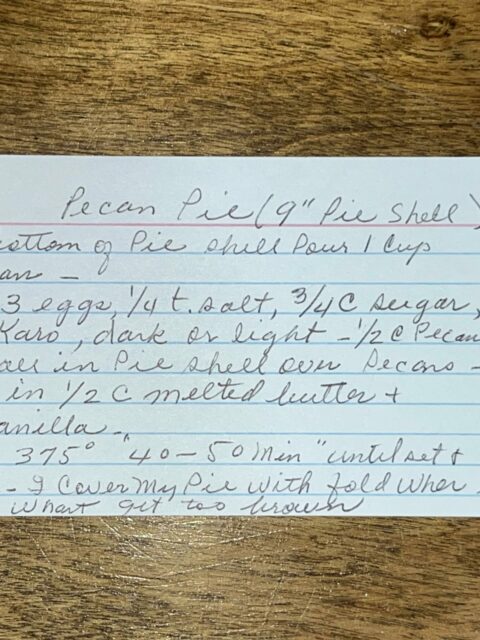 Pecan Pie (9" Pie Shell)
ottom of Pie shell Pour 1 Cup
an -
3 eggs, 1/4 t. salt, 3/4 C sugar,
Karo, dark or light - 1/2 C Pecan
in Pie shell over Pecans -
in 1/2 C melted butter +
anilla -
375° "40-50 Min" until set +
- I Cover My Pie with fold when
get too brown